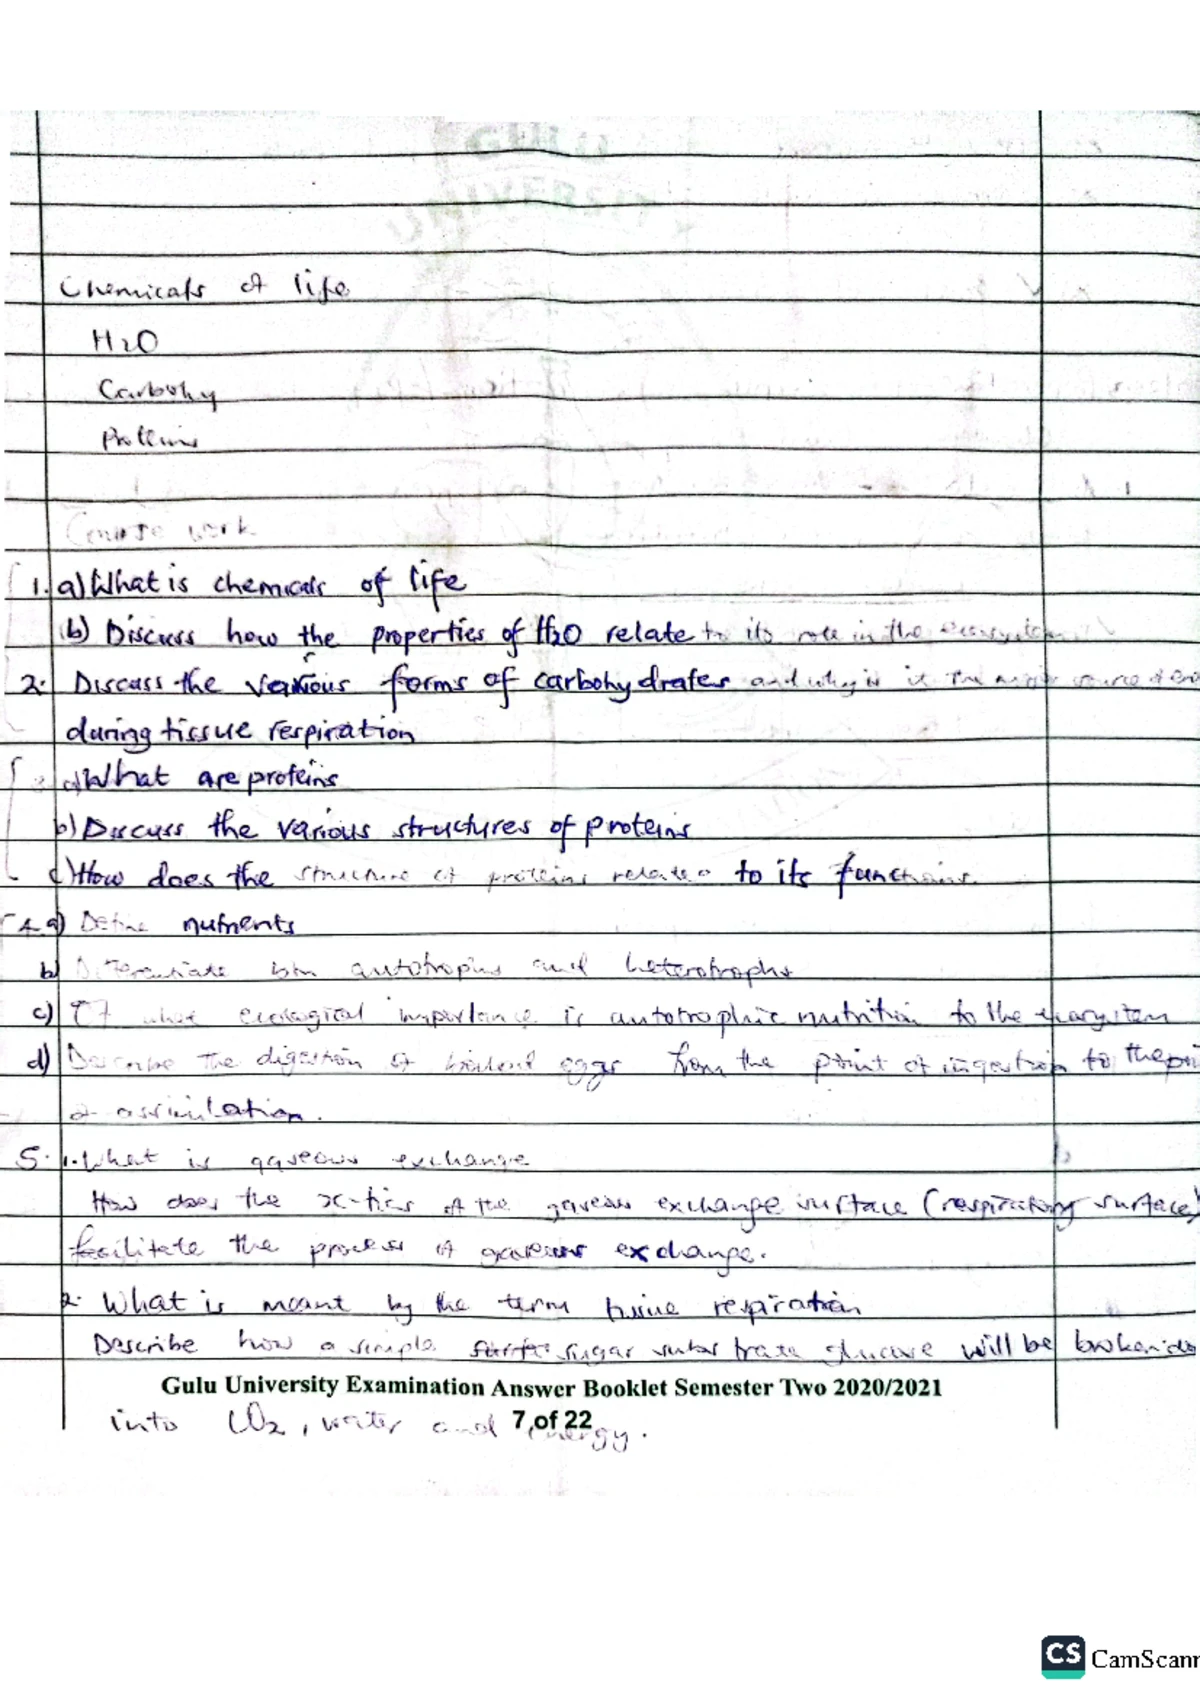 GULU
UNIVERSITY
Chemicals of life
H2O
Carbohy
Proteins
Course work
1. a) What is chemicals of life
(b) Discuss how the properties of H2O relate to its role in the ecosystem
2. Discuss the various forms of carbohydrates and why is it the major source of ene
during tissue respiration
3 a) What are proteins
b) Discuss the various structures of proteins
c) How does the structure of proteins relates to its functions.
4. a) Define nutrients
b) Differentiate btn autotrophs and heterotrophs
c) Of what ecological importance is autotrophic nutrition to the ecosystem
d) Describe the digestion of eggs from the point of ingestion to the poi
of assimilation.
5. 1. What is gaseous exchange
How does the x-tics of the gaseous exchange surface (respiratory surface)
facilitate the process of gaseous exchange.
2. What is meant by the term tissue respiration
Describe how a simple sugar substrate glucose will be broken do
Gulu University Examination Answer Booklet Semester Two 2020/2021
into CO2, water and energy.
7 of 22
CS CamScann